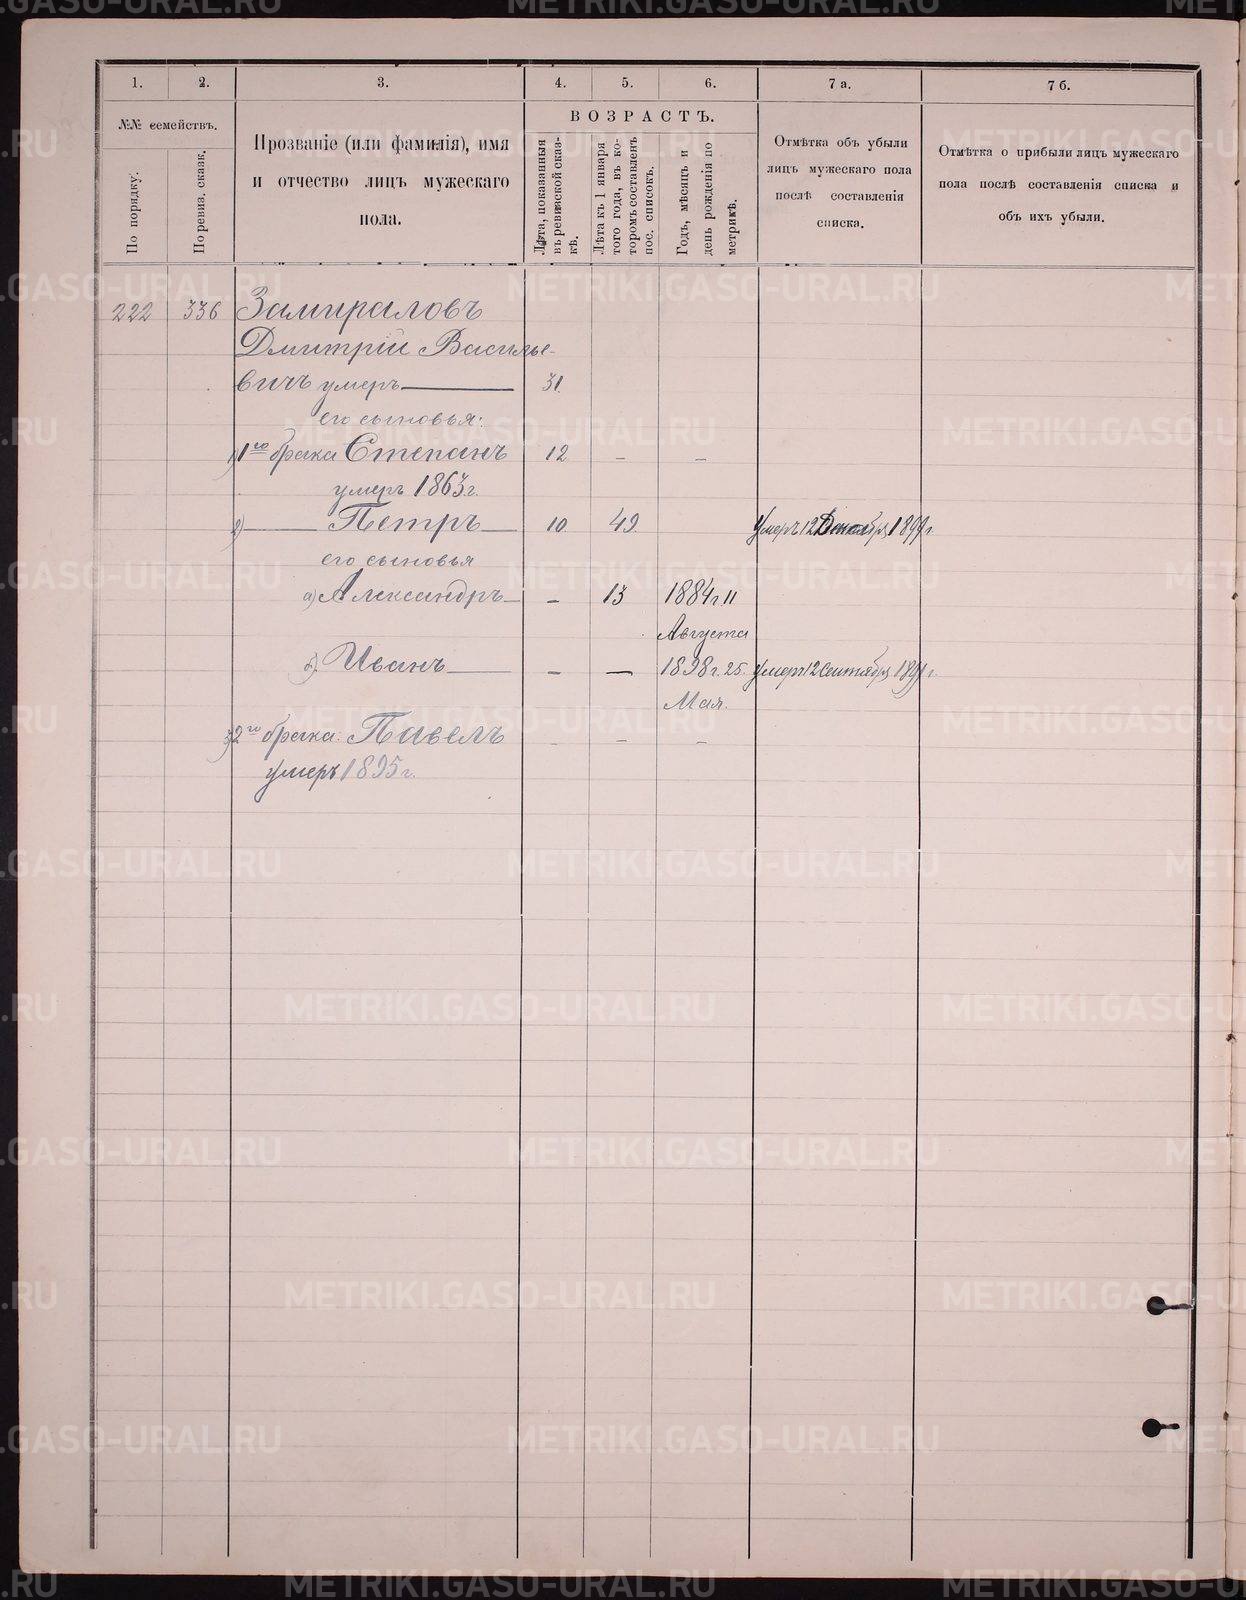 1.
2.
3.
4.
5.
6.
7 а.
7 б.
№№ семействъ.
По порядку.
По ревиз. сказк.
Прозваніе (или фамилія), имя
и отчество лицъ мужескаго
пола.
ВОЗРАСТЪ.
Лѣта, показанныя
въ ревизской сказ-
кѣ.
Лѣта къ 1 января
того года, въ ко-
торомъ составленъ
пос. списокъ.
Годъ, мѣсяцъ и
день рожденія по
метрикѣ.
Отмѣтка объ убыли
лицъ мужескаго пола
послѣ составленія
списка.
Отмѣтка о прибыли лицъ мужескаго
пола послѣ составленія списка и
объ ихъ убыли.
222 336 Замираловъ
Дмитрій Василье-
вичъ умеръ 31.
его сыновья:
1) 1го брака Степанъ 12 – –
умеръ 1863 г.
2) Петръ 10 49. Умеръ 12 1899 г.
его сыновья
а) Александръ – 13 1884 г. 11
Августа
б). Иванъ – – 1898 г. 25. умеръ 12 Сентября г.
Мая.
3) 2го брака: Павелъ – – –
умеръ 1895 г.
METRIKI.GASO-URAL.RU